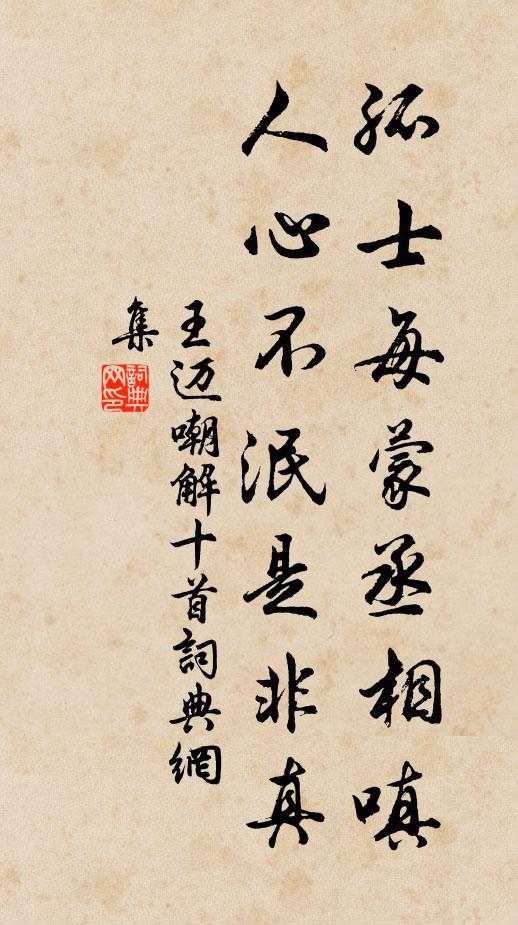 孤士每蒙丞相嗔
人心不泯是非真
王迈嘲解十首詞典網
集
詞典
网印